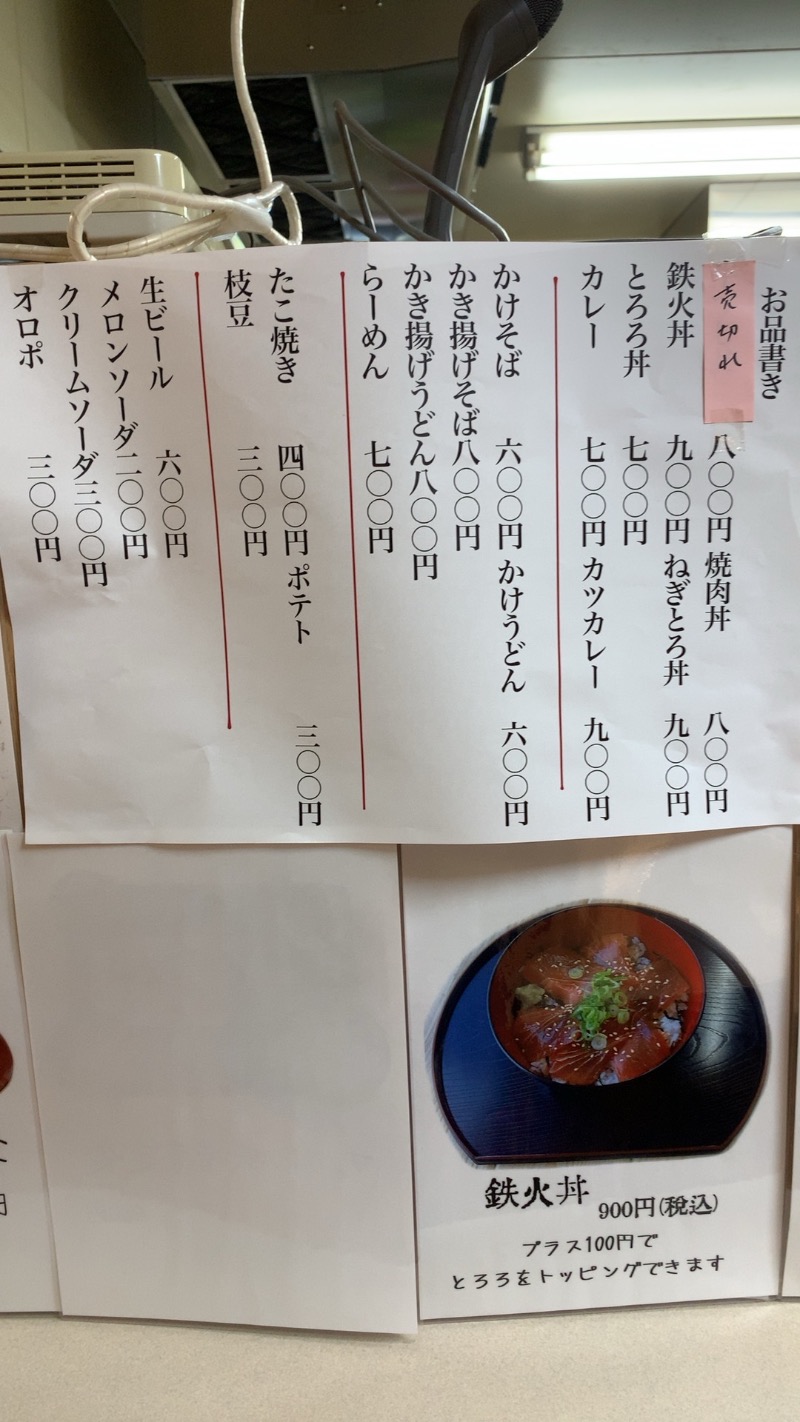 お品書き
売切れ 八〇〇円 焼肉丼 八〇〇円
鉄火丼 九〇〇円 ねぎとろ丼 九〇〇円
とろろ丼 七〇〇円
カレー 七〇〇円 カツカレー 九〇〇円
かけそば 六〇〇円 かけうどん 六〇〇円
かき揚げそば 八〇〇円
かき揚げうどん 八〇〇円
らーめん 七〇〇円
たこ焼き 四〇〇円 ポテト 三〇〇円
枝豆 三〇〇円
生ビール 六〇〇円
メロンソーダ 二〇〇円
クリームソーダ 三〇〇円
オロポ 三〇〇円
鉄火丼 900円(税込)
プラス100円で
とろろをトッピングできます